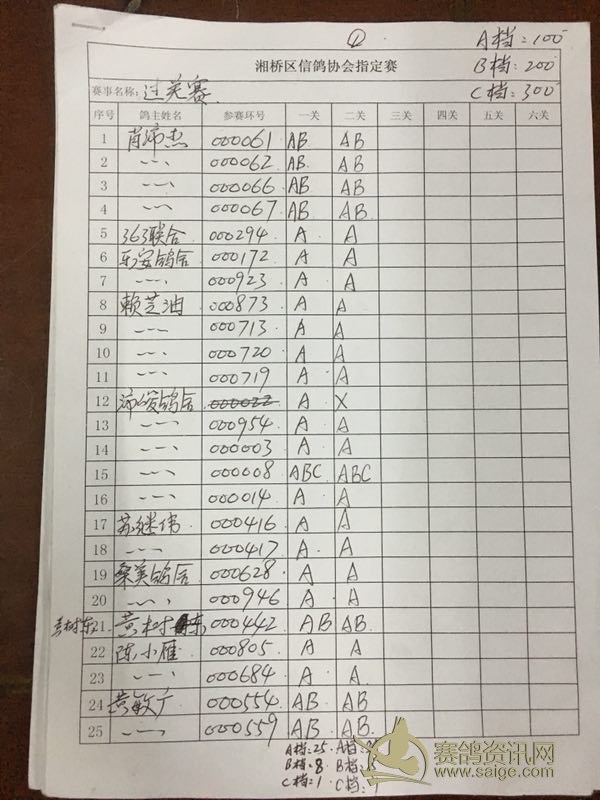 ①
A档:100
湘桥区信鸽协会指定赛
B档:200
赛事名称: 过关赛
C档:300
序号 鸽主姓名 参赛环号 一关 二关 三关 四关 五关 六关
1 肖沛杰 000061 AB AB
2 〃 000062 AB AB
3 〃 000066 AB AB
4 〃 000067 AB AB
5 363联合 000294 A A
6 乐安鸽舍 000172 A A
7 〃 000923 A A
8 赖芝油 000873 A A
9 〃 000713 A A
10 〃 000720 A A
11 〃 000719 A A
12 鸽舍 000022 A X
13 〃 000954 A A
14 〃 000003 A A
15 〃 000008 ABC ABC
16 〃 000014 A A
17 苏继伟 000416 A A
18 〃 000417 A A
19 鸽舍 000628 A A
20 〃 000946 A A
21 黄树东 000442 AB AB
22 陈小雁 000805 A A
23 〃 000684 A A
24 黄敏广 000554 AB AB
25 〃 000559 AB AB
A档:25 A档:
B档:8 B档:
C档:1 C档:
赛鸽资讯网
www.saige.com